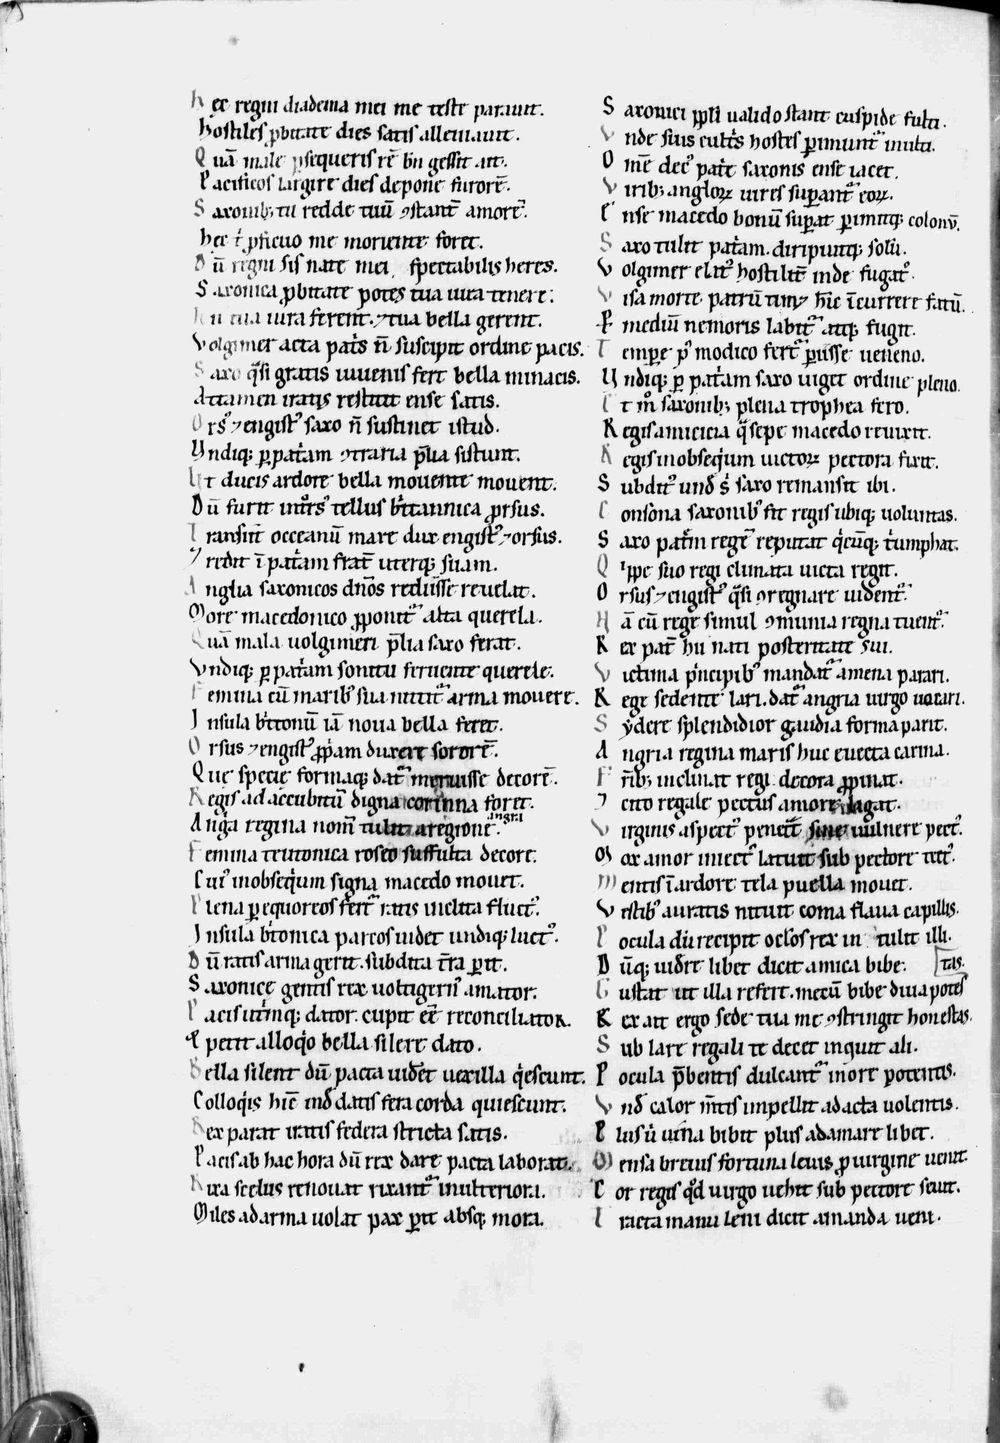 Hec regni diadema mei me teste parauit.
Hostiles ꝓbitate dies satis alleuiauit.
Quā male ꝑsequeris rē bn̄ gessit ait.
Pacificos largire dies depone furorē.
Saxonibꝫ tu redde tuū ꝯstant̄ amorē.
hec t̄ ꝓficuo me moriente foret.
Dū regni sis nate mei spectabilis heres.
Saxonica ꝓbitate potes tua iura tenere:
tua iura ferent ⁊ tua bella gerent.
Volgimer acta pat̄s n̄ suscipit ordine pacis.
Saxo q̄si gratis iuuenis fert bella minacis.
Attamen iratis restitit ense satis.
Orsꝰ ⁊ engistꝰ saxo n̄ sustinet istud.
Vndiqꝫ ꝑ pat̄am ꝯtraria p̄lia sistunt.
Vt ducis ardore bella mouente mouent.
Dū furit tellus b̄tannica ꝓrsus.
Transiit̄ occeanū mare dux engistꝰ ⁊ orsus.
⁊ redit ī pat̄am frat̄ uterqꝫ suam.
Anglia saxonicos dn̄os rediīsse reuelat.
More macedonico ꝓponit᷑ alta querela.
Quā mala uolgimeri p̄lia saxo ferat.
Vndiqꝫ ꝑ pat̄am sonitu feruente querele.
Femina cū maribꝰ sua nitit᷑ arma mouere.
Insula b̄ttonū iā noua bella feret.
Orsus ⁊ engistꝰ ꝓp̄am duxere sororē.
Que specie formaqꝫ dat᷑ meruisse decorē.
Regis ad accubitū digna corinna foret.
Anḡa regina nom̄ tulit a regione. angri
Femina teutonica roseo suffulta decore.
Cuiꝰ in obseq̄um signa macedo mouet.
Plena ꝑ equoreos fert᷑ ratis inclita fluctꝰ.
Insula b̄tonica parcos uidet undiqꝫ luctꝰ.
Dū ratis arma gerit. subdita t̄ra ꝑit.
Saxonice gentis rex uoltigernꝰ amator.
Pacis ut̄imqꝫ dator. cupit ēē reconciliator.
⁊ petit alloq̄o bella silere dato.
Bella silent dū pacta uident uexilla q̄escunt.
Colloq̄is hīc in̄ datis fera corda quiescunt.
Rex parat iratis federa stricta satis.
Pacis ab hac hora dū rex dare pacta laborat.
Rixa scelus renouat rixant᷑ in ulteriora.
Miles ad arma uolat pax ꝑit absqꝫ mora.
Saxonici ꝓp̄li ualido stant cuspide fulti.
Vnde suis cult̄s hostes ꝑimunt᷑ inulti.
Om̄e decꝰ pat̄e saxonis ense iacet.
Viribꝫ angloꝝ uires suꝑant᷑ eoꝝ.
Ense macedo bonū suꝑat ꝑimitqꝫ colonū.
Saxo tulit pat̄am. diripuitqꝫ soli.
Volgimer elicꝰ hostilit̄ inde fugatꝰ.
Visa morte patrū h̄ic īcurrere fatū.
⁊ mediū nemoris labit᷑ atqꝫ fugit.
Tempe pꝰ modico fert᷑ ꝑiisse ueneno.
Vndiqꝫ ꝑ pat̄am saxo uiget ordine pleno.
Et m̊ saxonibꝫ plena trophea fero.
Regis amicicia q̄ sepe macedo reuixit.
Regis in obseq̄ium uictoꝝ pectora fixit.
Subditꝰ und s̄ saxo remansit ibi.
Consona saxonibꝰ fit regis ubiqꝫ uoluntas.
Saxo pat̄m regē reputat q̄cūqꝫ t̄umphat.
Qippe suo regi climata uicta regit.
Orsus ⁊ engistꝰ q̄si ꝯregnare uident᷑.
Nā cū rege simul ꝯmunia regna tuent᷑.
Rex pat̄ hii nati posteritate sui.
Victima p̄ncipibꝰ mandat᷑ amena parari.
Rege sedente lari. dat᷑ angria uirgo uocari.
Sydere splendidior gaudia forma parit.
Angria regina maris huc euecta carina.
Fr̄ibꝫ inclinat regi decora ꝓpinat.
⁊ cito regale pectus amore ligat.
Virginis aspectꝰ penet̄t sine uulnere pectꝰ.
Mox amor iniectꝰ latuit sub pectore tectꝰ.
Mentis ī ardore tela puella mouet.
Vestibꝰ auratis nituit coma flaua capillis.
Pocula dū recipit oc̄los rex in tulit illi.
Dūqꝫ uid̄re libet dicit amica bibe. tas.
Gustat ut illa refert. mecū bibe diua potes
Rex ait ergo sede tua me ꝯstringit honestas.
Sub lare regali te decet inquit ali.
Pocula p̄bentis dulcant᷑ in ore potentis.
Vn̄ calor m̄tis impellit ad acta uolentis.
Plus ū uina bibit plus adamare libet.
Mensa breuis fortuna leuis ꝓ uirgine uenit.
Cor regis q̄d uirgo uehit sub pectore sciit.
Tracta manu leni dicit amanda ueni.